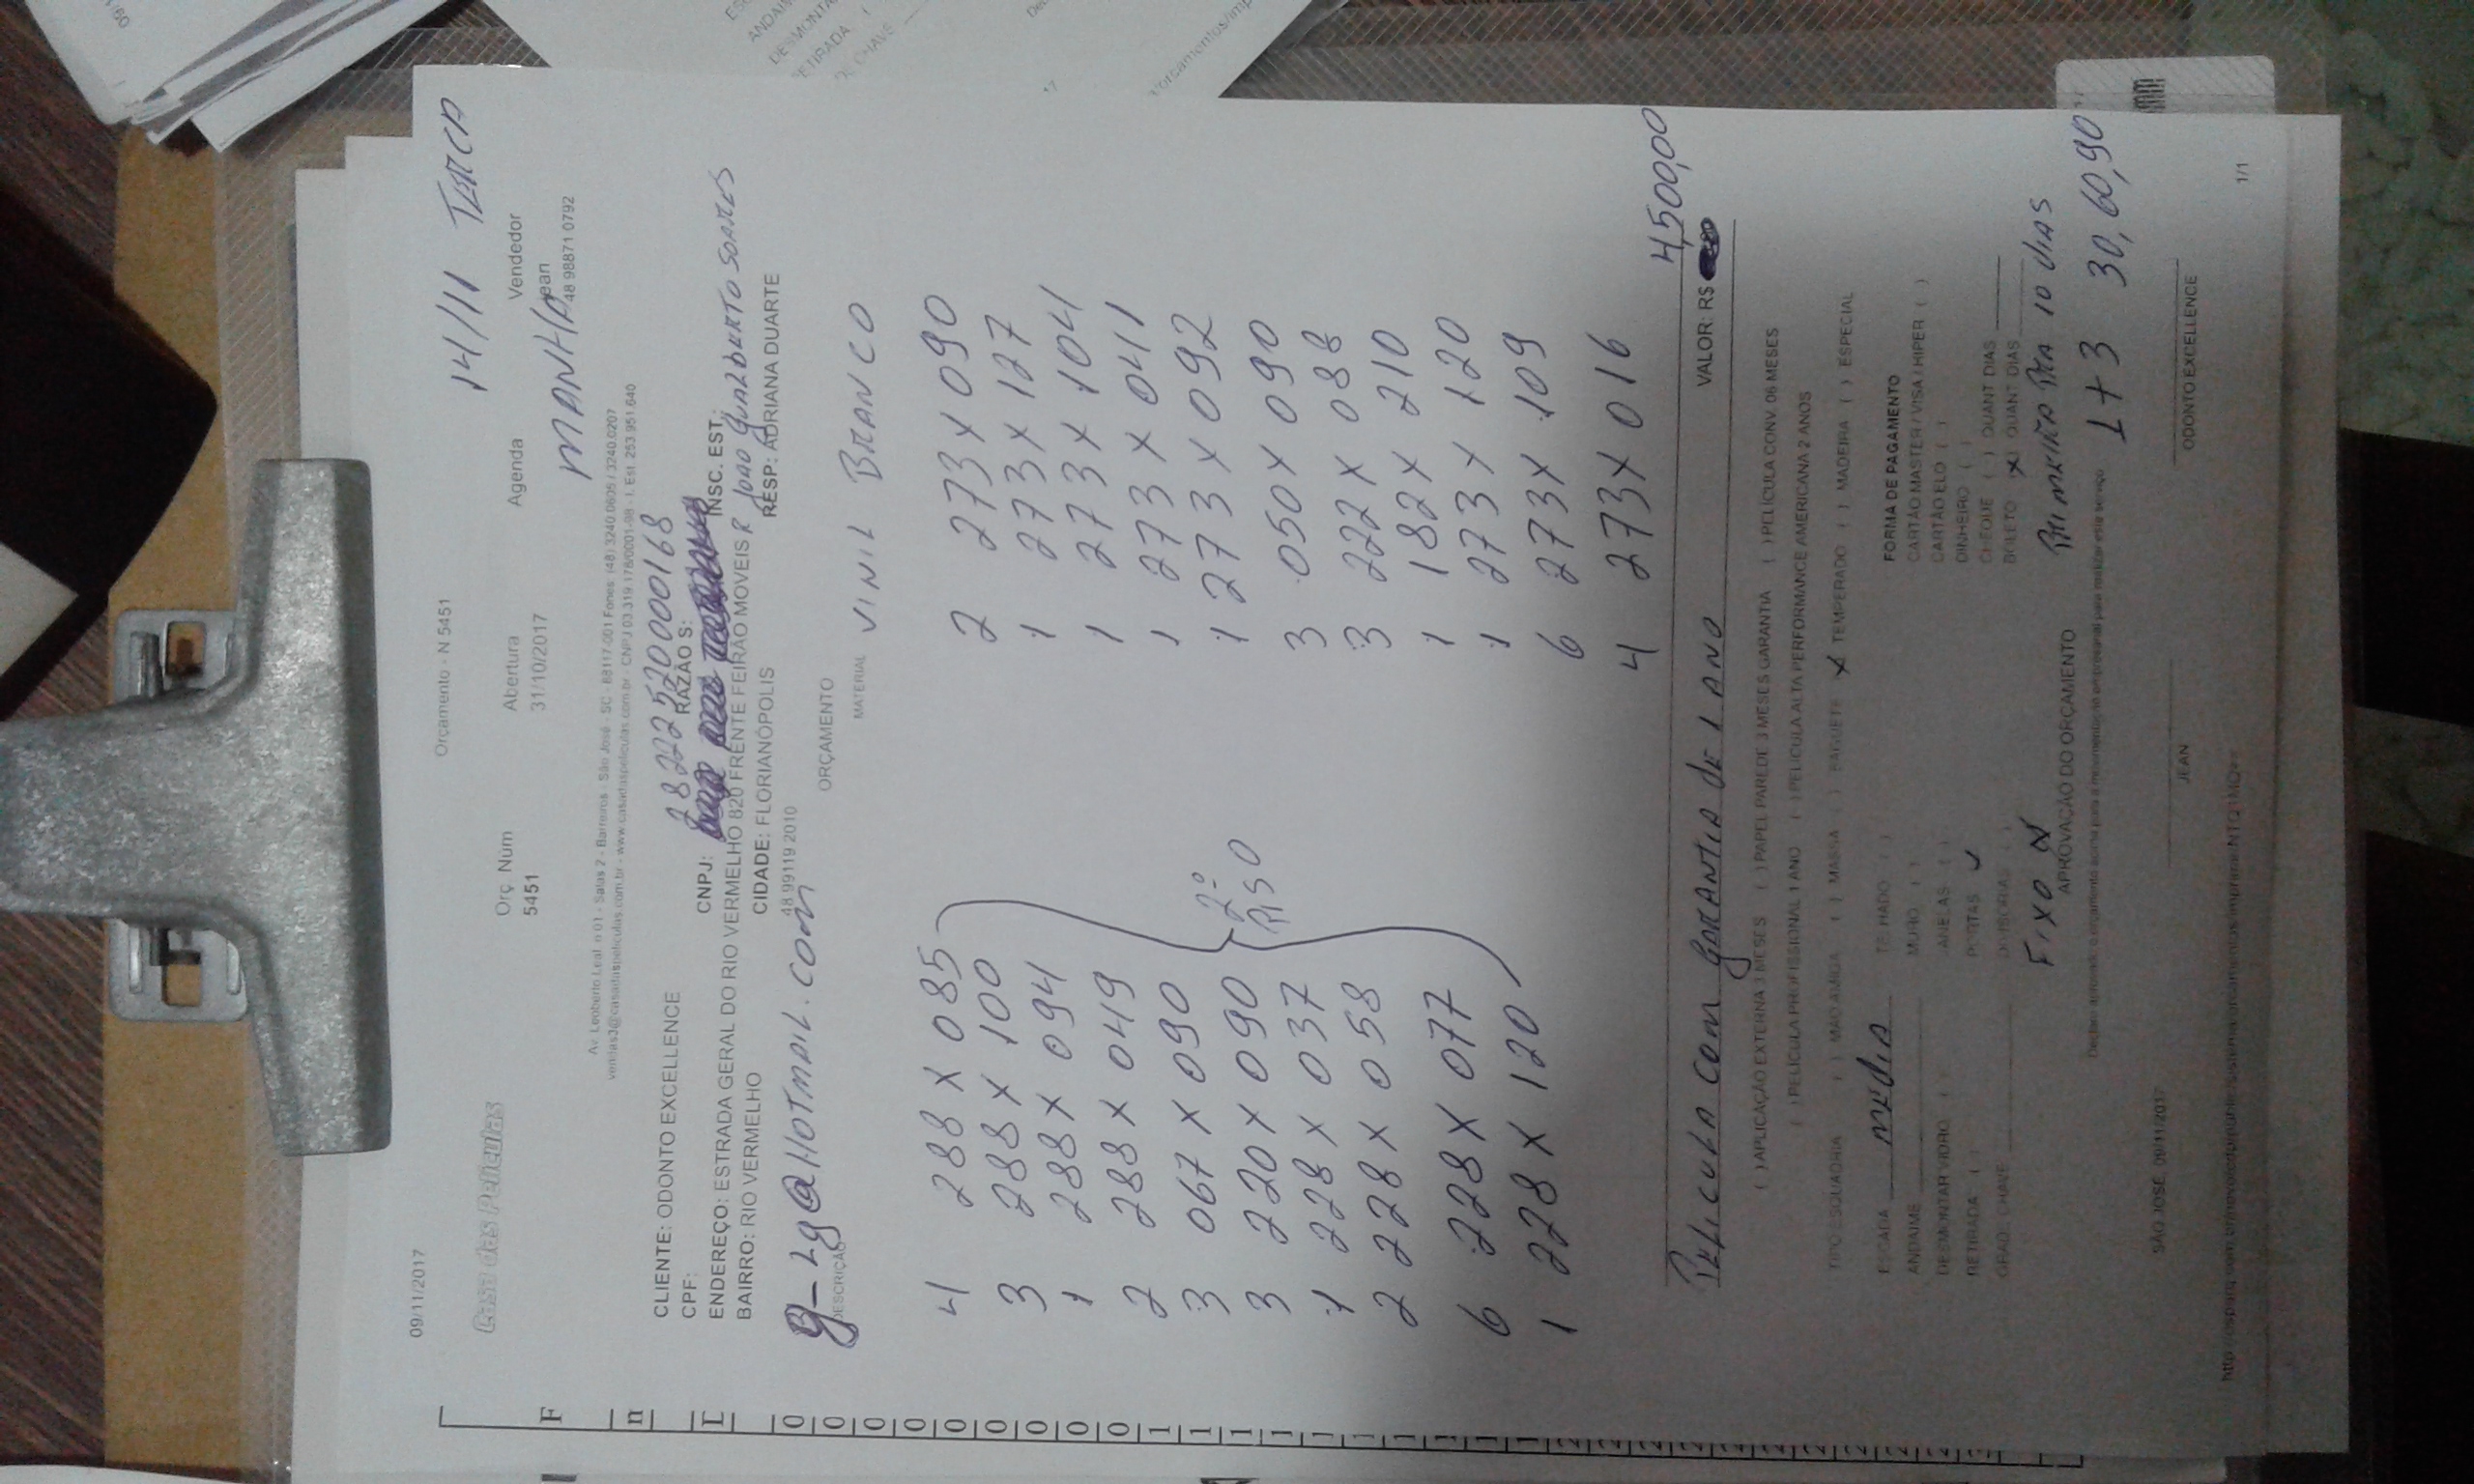 09/11/2017
Orçamento - N 5451
14/11 TERÇA
Casa das Películas
Orç. Núm
Abertura
Agenda
Vendedor
5451
31/10/2017
MANHÃ
Jean
48 98871 0792
Av. Leoberto Leal, n 01 - Salas 2 - Barreiros - São José - SC - 88117-001 Fones: (48) 3240.0605 / 3240.0207
vendas3@casadaspeliculas.com.br - www.casadaspeliculas.com.br - CNPJ 03.319.178/0001-98 - I. Est. 253.951.640
28222520000168
CLIENTE: ODONTO EXCELLENCE
RAZÃO S:
CPF:
CNPJ:
INSC. EST.:
ENDEREÇO: ESTRADA GERAL DO RIO VERMELHO 820 FRENTE FEIRÃO MOVEIS R JOAO GUALBERTO SOARES
BAIRRO: RIO VERMELHO
CIDADE: FLORIANÓPOLIS
RESP: ADRIANA DUARTE
48 99119 2010
g-lg@HOTMAIL.COM
ORÇAMENTO
DESCRIÇÃO
MATERIAL
VINIL BRANCO
4 288 X 085
2 273 X 090
3 288 X 100
1 273 X 127
1 288 X 094
1 273 X 104
2 288 X 049
1 273 X 041
3 067 X 090
1 273 X 092
2º PISO
3 220 X 090
3 050 X 090
1 228 X 037
3 222 X 088
2 228 X 058
1 182 X 210
6 228 X 077
1 273 X 120
1 228 X 120
6 273 X 109
4 273 X 016
4,500,00
PELICULA COM GARANTIA DE 1 ANO
VALOR: R$
( ) APLICAÇÃO EXTERNA 3 MESES ( ) PAPEL PAREDE 3 MESES GARANTIA ( ) PELÍCULA CONV. 06 MESES
( ) PELICULA PROFISSIONAL 1 ANO ( ) PELICULA ALTA PERFORMANCE AMERICANA 2 ANOS
TIPO ESQUADRIA ( ) MÃO AMIGA ( ) MASSA ( ) BAGUETE X TEMPERADO ( ) MADEIRA ( ) ESPECIAL
ESCADA MEDIA
TELHADO ( )
FORMA DE PAGAMENTO
ANDAIME
MURO ( )
CARTÃO MASTER / VISA / HIPER ( )
DESMONTAR VIDRO ( )
JANELAS ( )
CARTÃO ELO ( )
RETIRADA ( )
PORTAS ✓
DINHEIRO ( )
GRAD. CHAVE
DIVISORIAS ( )
CHEQUE ( ) QUANT DIAS
BOLETO X QUANT DIAS
FIXO X
PRIMEIRA PRA 10 DIAS
APROVAÇÃO DO ORÇAMENTO
1+3 30,60,90
SÃO JOSÉ, 09/11/2017
JEAN
ODONTO EXCELLENCE
1/1